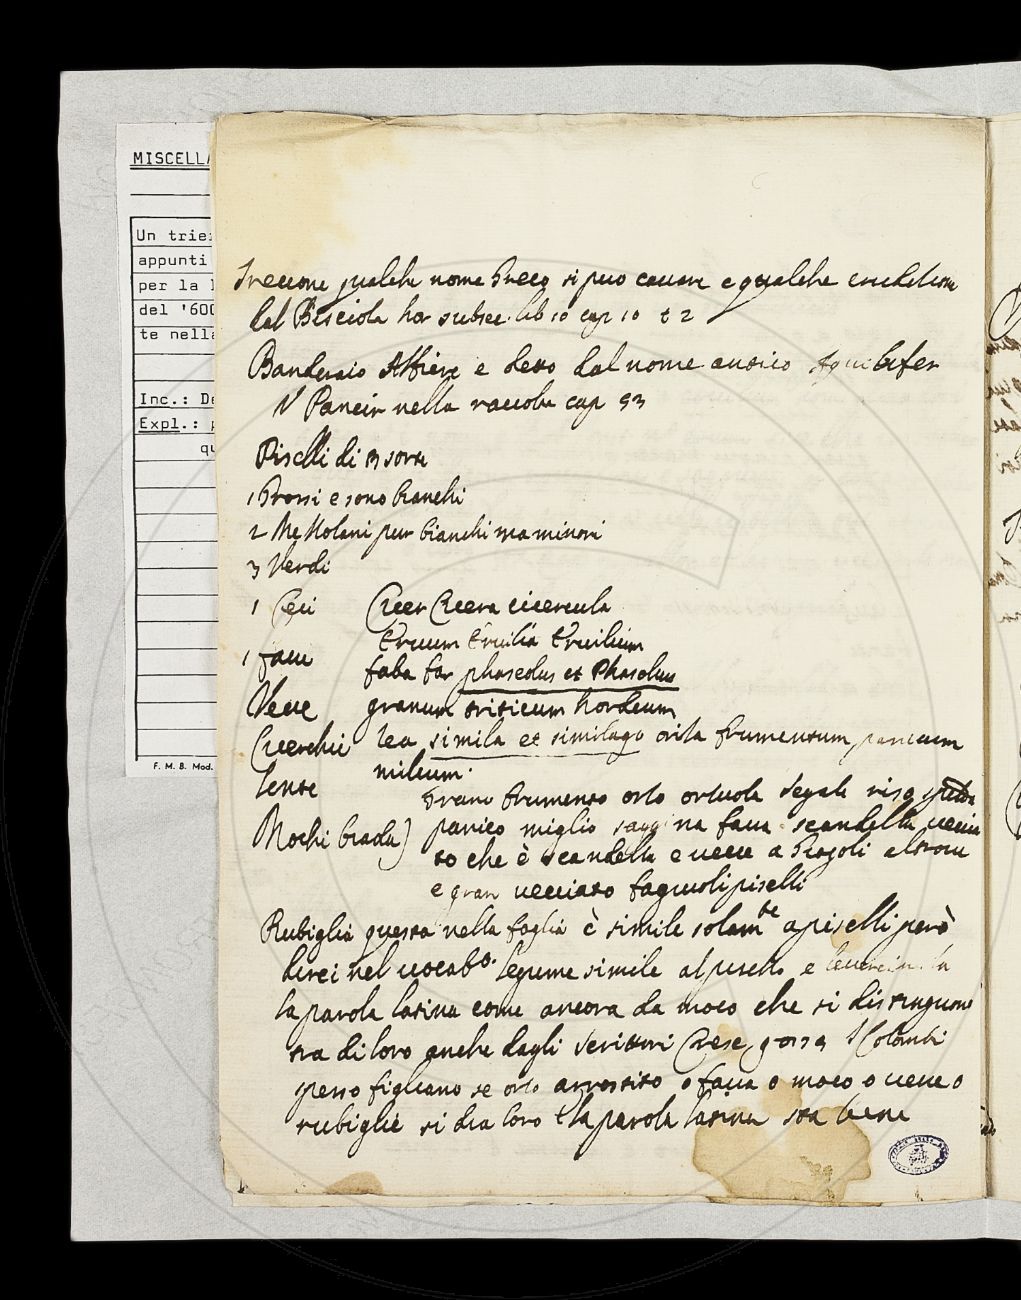 MISCELLA
Un trie
appunti
per la
del '600
te nella
Inc.: De
Expl.: p
qu
F. M. B. Mod.
Treccone qualche nome Greco si puo cavare e qualche erudizione
dal Bisciola hor subsec. lib 10 cap 10 t 2
Banderaio Alfiere e detto dal nome antico Aquilifer
V Pancir nella raccolta cap 53
Piselli di 3 sorte
1 Grossi e sono bianchi
2 Mezzolani pur bianchi ma minori
3 Verdi
1 Ceci Cicer Cicera cicercula
Ervum Ervilia Ervilium
1 fave faba far phaseolus et Phaselus
Vecce granum triticum hordeum
Cicerchie zea simila et similago oriza frumentum, panicum
milium.
Lente
Grano frumento orzo orzuola segale riso spelta
Mochi biada) panico miglio saggina fava scandella veccia
to che è scandella e vecce a Grogoli altrove
e gran vecciato fagiuoli piselli
Rubiglia questa nella foglia è simile solam.te a piselli però
direi nel vocabo. legume simile al pisello e
la parola latina come ancora da moco che si distinguono
tra di loro anche dagli scrittori Crese. 9 o 13 a I Colombi
spesso figliano se orzo arrostito o fava o moco o vecce o
rubiglie si dia loro e la parola latina sta bene